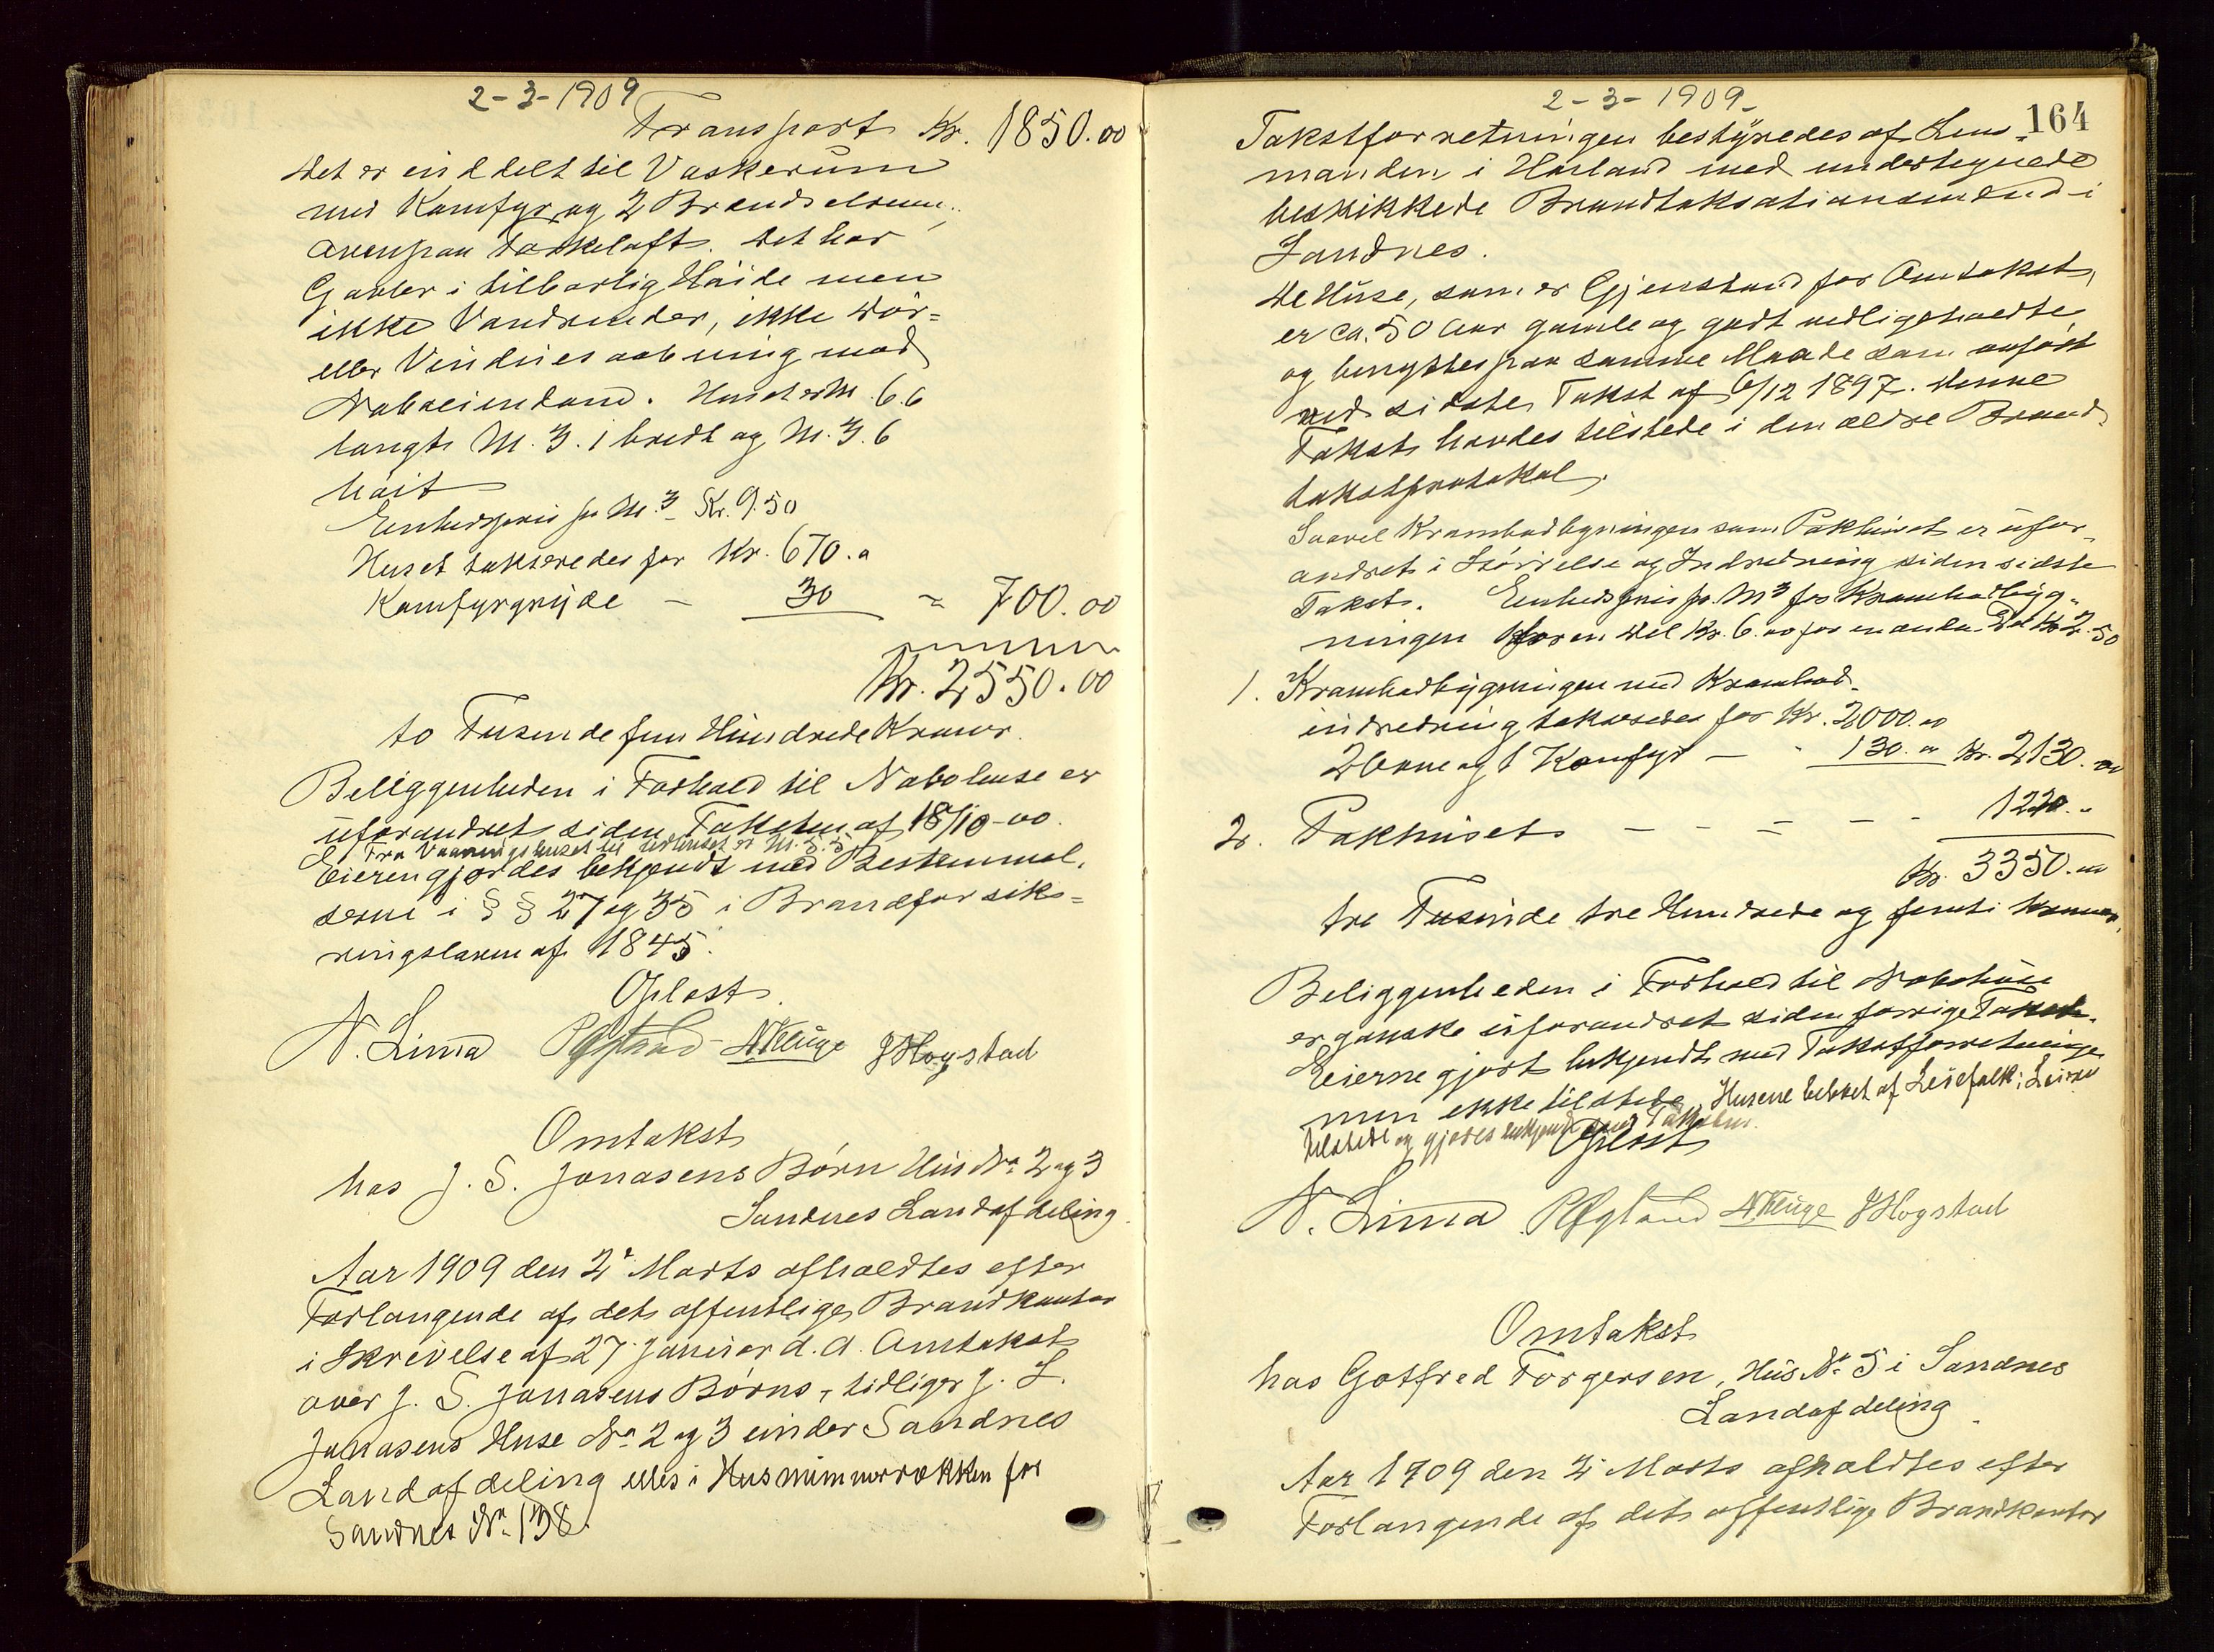 2-3-1909
Transport Kr. 1850.00
Det er inddelt til Vaskerum
med Komfyr og 2 Brændselsrum,
ovenpaa Tørkeloft. Det har
Gavler i tilbørlig Høide men
ikke Vandrender, ikke Dør-
eller Vinduesaabning mod
Naboeiendom. Huset er M. 6.6
langt M. 3.1 bredt og M. 3.6
høit
Enhedspris pr M.3 Kr. 9.50
Huset takseredes for Kr. 670.00
Komfyrgryde - 30 " 700.00
Kr. 2550.00
to Tusende fem Hundrede Kroner.
Beliggenheden i Forhold til Nabohuse er
uforandret siden Taksten af 18/10-00.
Fra Vaaningshuset til Udhuset er M. 5.5
Eieren gjordes bekjendt med Bestemmel-
serne i §§ 27 og 35 i Brandforsik-
ringsloven af 1845.
Oplæst.
N. Lima N Kluge J Hogstad
Omtakst
hos J. S. Jonasens Børn Hus No 2 og 3
Sandnes Landafdeling.
Aar 1909 den 2' Marts afholdtes efter
Forlangende af det offentlige Brandkontor
i Skrivelse af 27 Januar d. A. Omtakst
over J. S. Jonasens Børns, tidliger J. S.
Jonasens Huse No 2 og 3 under Sandnes
Landafdeling elles i Husnummerrækken for
Sandnes No 138.
2-3-1909-
164
Takstforretningen bestyredes af Lens-
manden i Høiland med undertegnede
beskikkede Brandtaksationsmænd i
Sandnes.
De Huse, som er Gjenstand for Omtakst,
er ca. 50 Aar gamle og godt vedligeholdte
og benyttes paa samme Maade som anført
ved sidste Takst af 6/12 1897. Denne
Takst havdes tilstede i den ældre Brand-
takstprotokol.
Saavel Krambodbygningen som Pakhuset er ufor-
andret i Størrelse og Indredning siden sidste
Takst. Enhedspris pr. M3 for Krambodbyg-
ningen for en Del Kr. 6.00 for en anden Del Kr 2.50
1. Krambodbygningen med Krambod-
indredning takseredes for Kr. 2000.00
2 Ovne og 1 Komfyr - " 130.00 Kr. 2130.00
2. Pakhuset - - - - - 1220.-
Kr. 3350.00
tre Tusinde tre Hundrede og femti Kroner.
Beliggenheden i Forhold til Nabohuse
er ganske uforandret siden forrige Takst.
Eierne gjort bekjendt med Takstforretningen
men ikke tilstede. Husene beboet af Leiefolk; Leier
tilstede og gjordes bekjendt med Taksten.
Oplæst
N. Lima N Kluge J Hogstad
Omtakst
hos Gotfred Torgersen, Hus No 5 i Sandnes
Landafdeling.
Aar 1909 den 2' Marts afholdtes efter
Forlangende af det offentlige Brandkontor